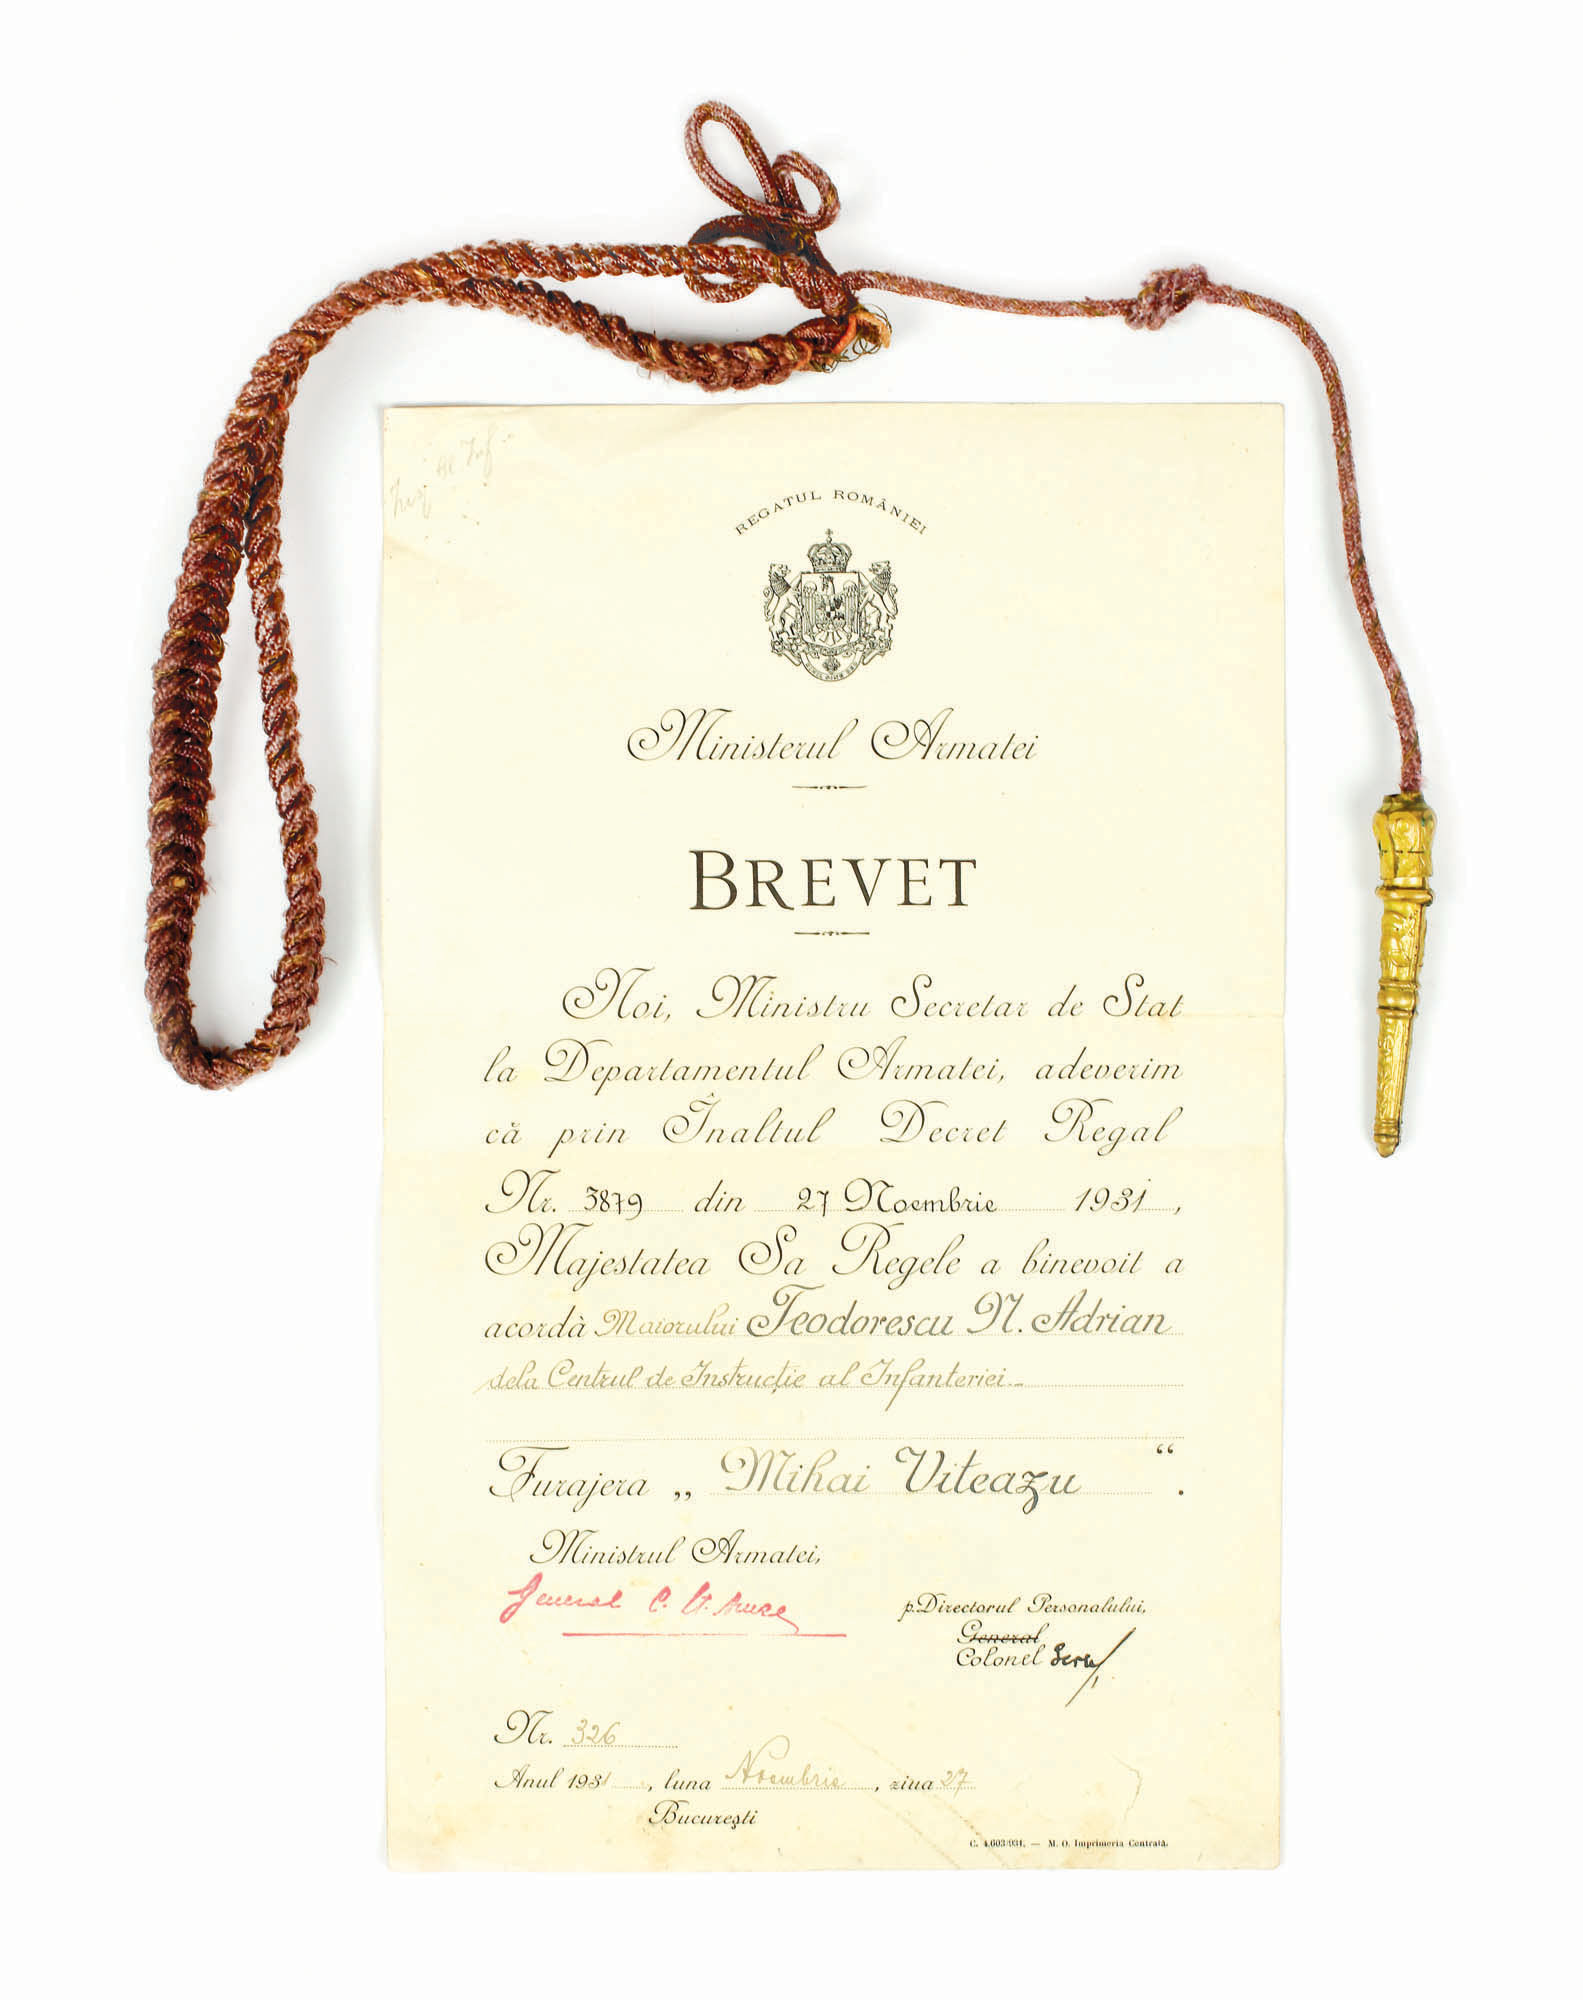 REGATUL ROMÂNIEI
Ministerul Armatei
BREVET
Noi, Ministru Secretar de Stat
la Departamentul Armatei, adeverim
că prin Înaltul Decret Regal
Nr. 3879 din 27 Noembrie 1931,
Majestatea Sa Regele a binevoit a
acordà Maiorului Teodorescu N. Adrian
dela Centrul de Instrucție al Infanteriei.
Furajera „ Mihai Viteazu “.
Ministrul Armatei,
General C.
p. Directorul Personalului,
General
Colonel
Nr. 326
Anul 1931, luna Noembrie, ziua 27
București
C. 4.603/931. — M. O. Imprimeria Centrală.